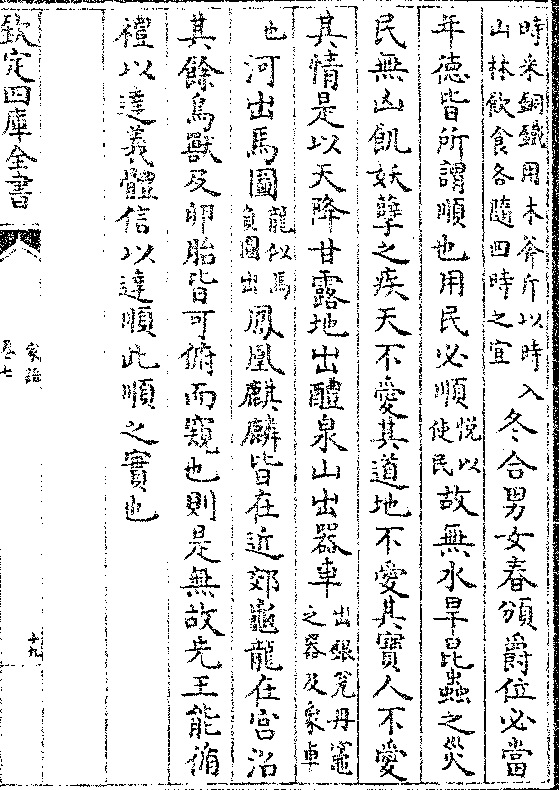 時采銅鐵用木斧斤以時入
山林飲食各隨四時之宜
冬合男女春頒爵位必當
年德皆所謂順也用民必順
悦以
使民
故無水旱昆蟲之災
民無凶飢妖孽之疾天不愛其道地不愛其寶人不愛
其情是以天降甘露地出醴泉山出器車
出銀瓮丹竈
之器及象車
也
河出馬圖
龍似馬
負圖出
鳳凰麒麟皆在近郊龜龍在宫沼
其餘鳥獸及卵胎皆可俯而窺也則是無故先王能脩
禮以達義體信以達順此順之實也
欽定四庫全書
家語
卷七
十九